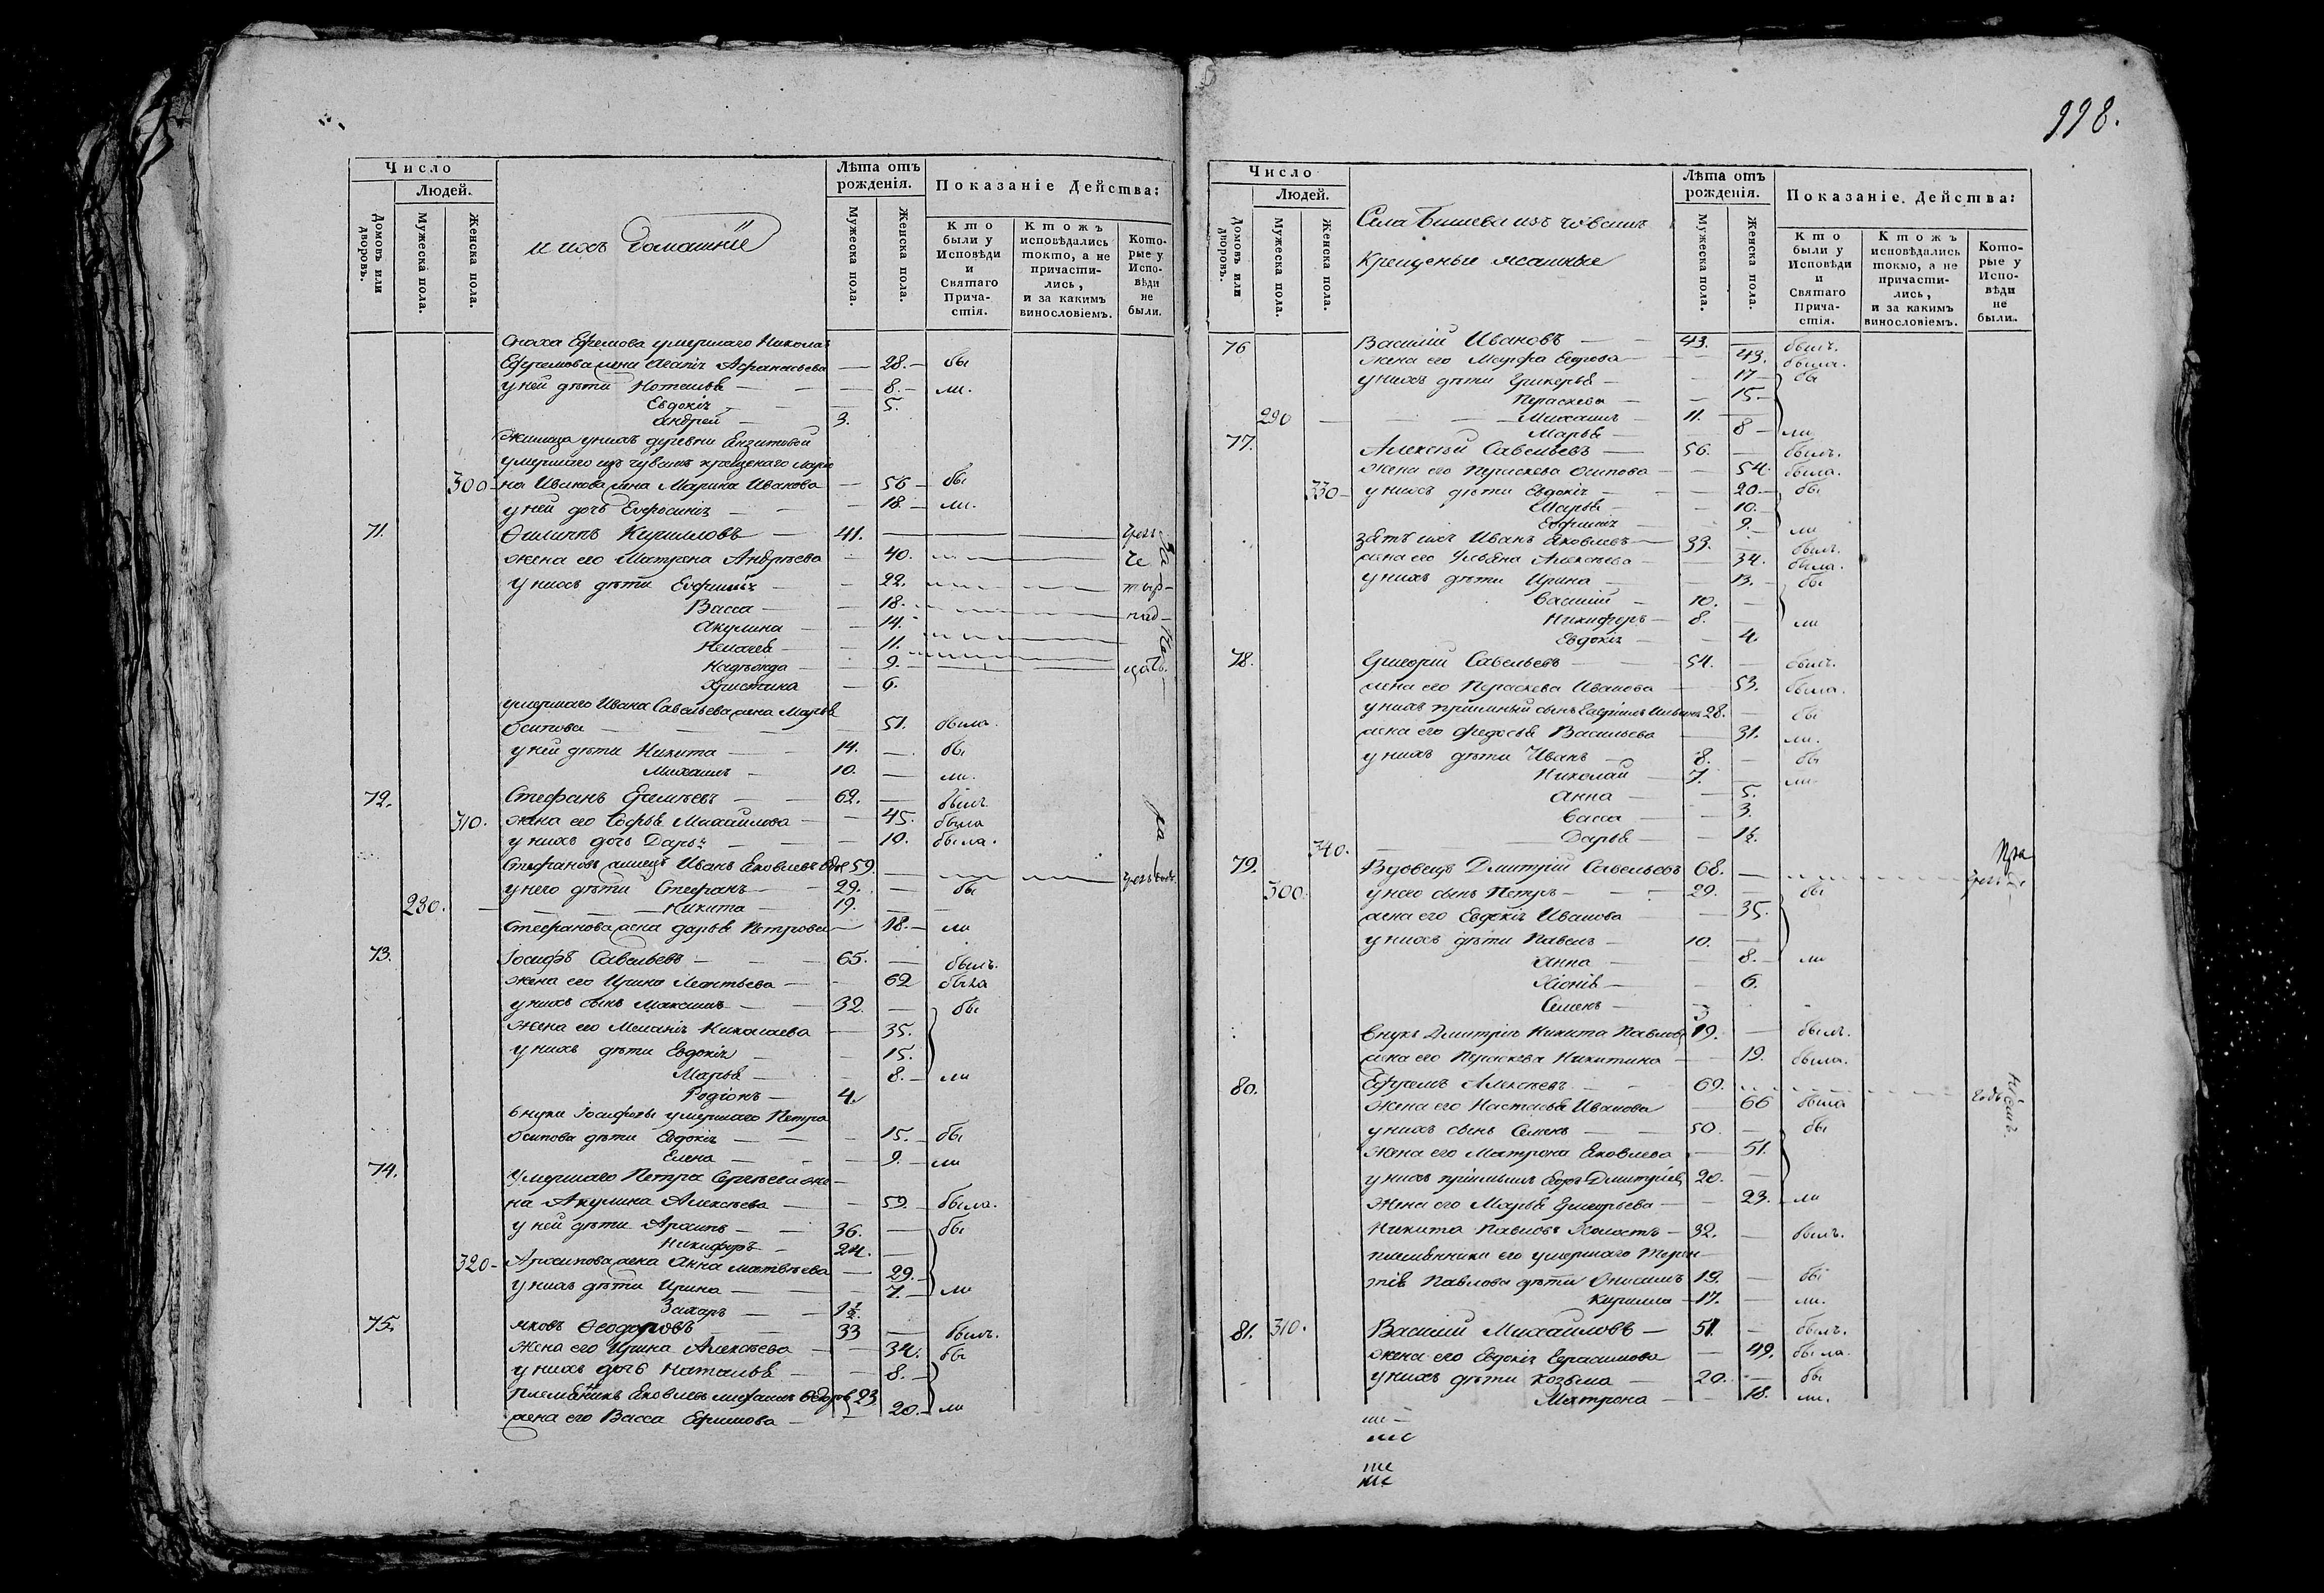 998.
Число
Людей.
Домовъ или дворовъ.
Мужеска пола.
Женска пола.
и ихъ домашнiе
Лѣта отъ рожденiя.
Мужеска пола.
Женска пола.
Показанiе Действа:
Кто были у Исповѣди и Святаго Причастiя.
Ктожъ исповѣдались токто, а не причастились, и за какимъ винословiемъ.
Которые у Исповѣди не были.
Сноха Ефремова умершаго Николая
Ефремова жена Агапiя Афанасьева — 28. — бы
у ней дѣти Наталья — 8. — ли.
Евдокiя — 5.
Андрей — 3.
Жилица у нихъ деревни
умершаго изъ чувашъ крещенаго
300 — на Иванова жена Марина Иванова — 56 — бы
у ней дочь Евфросинiя — 18. — ли.
71. Филиппъ Кирилловъ — 41.
жена его Матрена Андрѣева — 40.
у нихъ дѣти Евфимiя — 22.
Васса — 18.
Акулина — 14.
11.
Надѣжда — 9.
Христина — 6.
умершаго Ивана Савельева жена Марья
Осипова — 51. была.
у ней дѣти Никита — 14. — бы
Михаилъ — 10. — ли.
72. Стефанъ — 62. — былъ
310. жена его Софья Михайлова — 45. была
у нихъ дочь Дарья — 10. была.
Иванъ Яковлевъ 59.
у него дѣти Стефанъ — 29. — бы
290. Никита — 19.
Стефанова жена Дарья Петрова — 18. — ли
73. Iосифъ Савельевъ — 65. — былъ.
жена его Ирина Леонтьева — 62 была
у нихъ сынъ Максимъ — 32. — бы
жена его Меланiя Николаева — 35.
у нихъ дѣти Евдокiя — 15.
Марья — 8. — ли
Родiонъ — 4.
внуки Iосифовы умершаго Петра
Осипова дѣти Евдокiя — 15. — бы
Елена — 9. — ли
74. Умершаго Петра Сергѣева же-
на Акулина Алексѣева — 59. — была.
у ней дѣти Архипъ — 36. — бы
Никифоръ — 24. —
320 — Архипова жена Анна Матвѣева — 29.
у нихъ дѣти Ирина — 7. — ли
Захаръ — 1½.
75. Яковъ Ѳеодоровъ — 33 — былъ.
жена его Ирина Алексѣева — 34. бы
у нихъ дочь Наталья — 8. —
племянникъ Яковлевъ Ѳедоровъ 23.
жена его Васса Ефимова — 20. — ли
Число
Людей.
Домовъ или дворовъ.
Мужеска пола.
Женска пола.
Села Бишева изъ чувашъ
Крещеные ясашные
Лѣта отъ рожденiя.
Мужеска пола.
Женска пола.
Показанiе Действа:
Кто были у Исповѣди и Святаго Причастiя.
Ктожъ исповѣдались токмо, а не причастились, и за какимъ винословiемъ.
Которые у Исповѣди не были.
76 Василiй Ивановъ — 43. — былъ.
жена его Марфа Егорова — 43. была.
у нихъ дѣти Гликерья — 17 — бы
Параскева — 15 —
290 Михаилъ — 11. —
Марья — 8 — ли
77. Алексѣй Савельевъ — 56. — былъ.
жена его Параскева Осипова — 54. была.
330 — у нихъ дѣти Евдокiя — 20. — бы
Марья — 10.
Евфимiя — 9. — ли
зять ихъ Иванъ Яковлевъ — 33. — былъ.
жена его Ульяна Алексѣева — 34. была.
у нихъ дѣти Ирина — 13. — бы
Василiй — 10. —
Никифоръ — 8. — ли
Евдокiя — 4.
78. Григорiй Савельевъ — 54. — былъ.
жена его Параскева Иванова — 53. была.
у нихъ прiемный сынъ Гаврiилъ 28. — бы
жена его Федосья Васильева — 31. ли.
у нихъ дѣти Иванъ — 8. — бы
Николай — 7. — ли
Анна — 5.
Васса — 3.
340. Дарья — 1½.
79. Вдовецъ Дмитрiй Савельевъ 68. —
300. у него сынъ Петръ — 29. — бы
жена его Евдокiя Иванова — 35.
у нихъ дѣти Павелъ — 10. —
Анна — 8. — ли
Хiонiя — 6.
Семенъ — 3
внукъ Дмитрiя Никита Павловъ 19. — былъ.
жена его Параскева Никитина — 19. была.
80. Ефремъ Алексѣевъ — 69.
жена его Настасья Иванова — 66 была
у нихъ сынъ Семенъ — 50. — бы
жена его Матрона Яковлева — 51.
у нихъ прiемышъ Дмитрiевъ 20. —
жена его Марья Григорьева — 23. — ли
Никита Павловъ Холостъ — 32. — былъ.
племянники его умершаго
Павлова дѣти Онисимъ 19. — бы
Кирилла — 17. — ли.
81. 310. Василiй Михайловъ — 51. — былъ.
жена его Евдокiя Герасимова — 49. была.
у нихъ дѣти Козьма — 20. — бы
Матрона — 18. — ли.